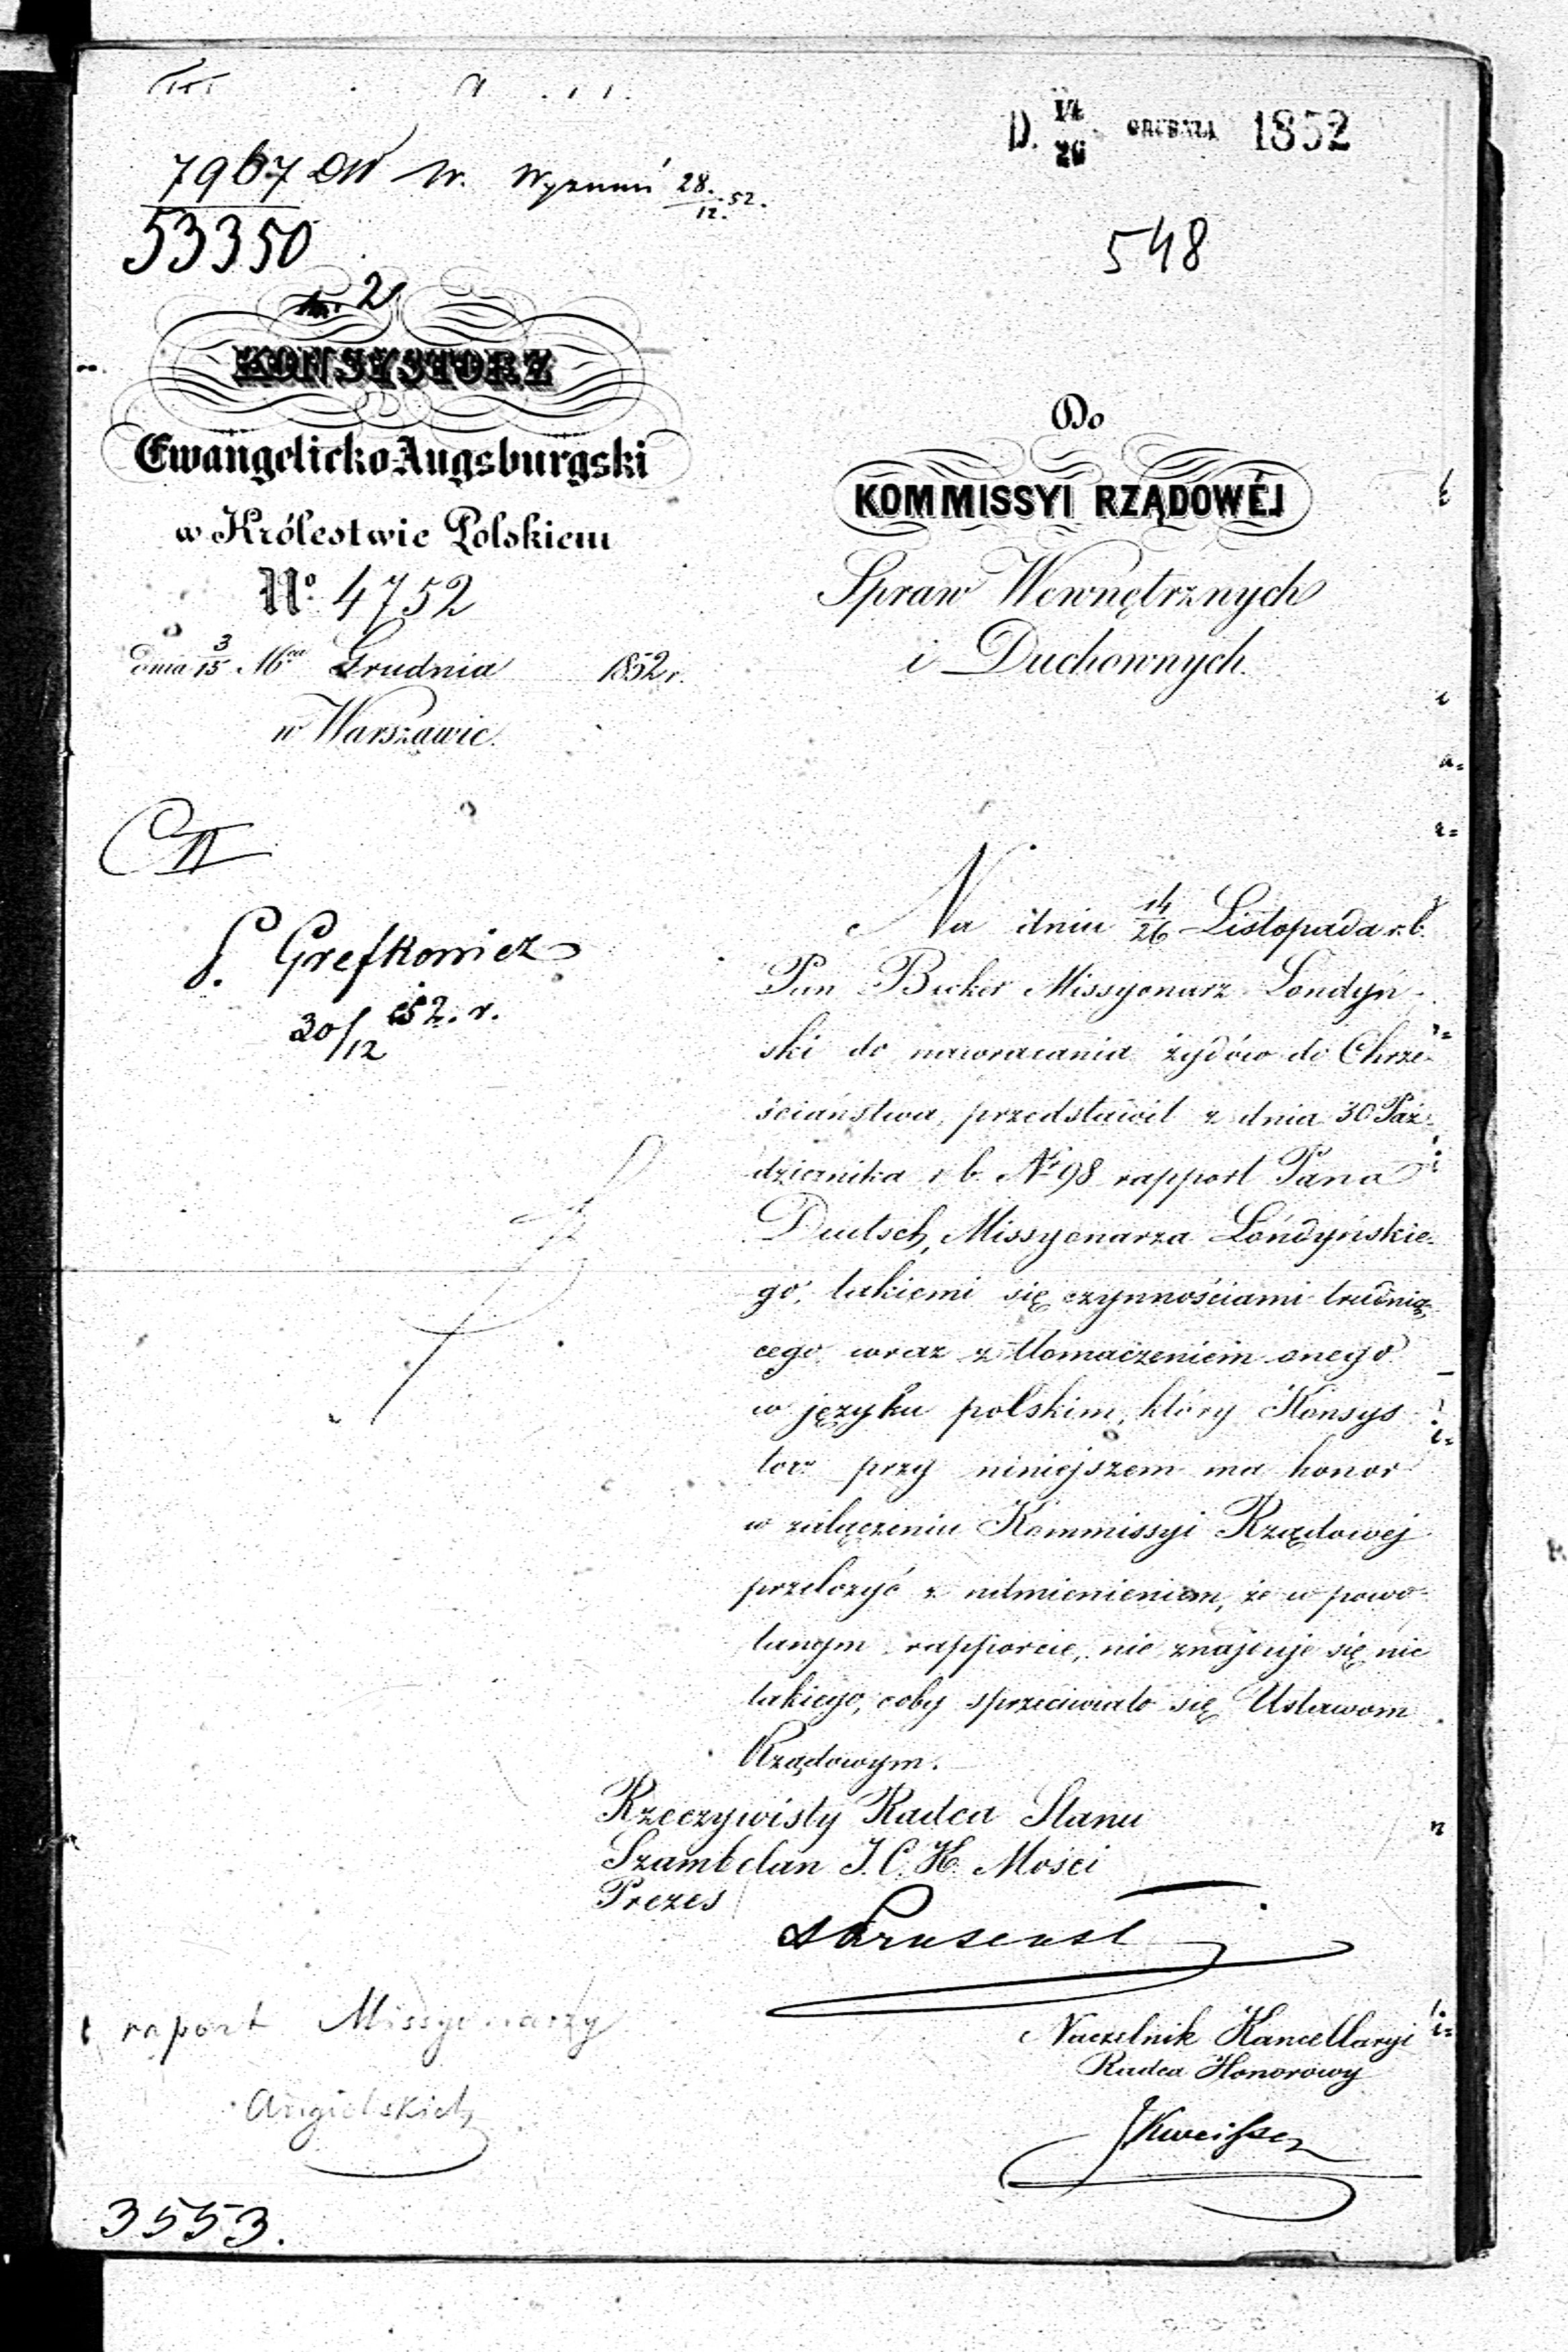 D. 14/26 GRUDNIA 1852
7967 W. Wyznań 28./12. 52.
53350
548
2
KONSYSTORZ
Ewangelicko-Augsburgski
w Królestwie Polskiem
No. 4752
dnia 3/15 Mca Grudnia 1852 r.
w Warszawie.
Do
KOMMISSYI RZĄDOWÉJ
Spraw Wewnętrznych
i Duchownych.
II
P. Grefkowicz
30/12 52. r.
Na dniu 14/26 Listopada r.b.
Pan Becker Missyonarz Londyń-
ski do nawracania żydów do Chrze-
ściaństwa, przedstawił z dnia 30 Paź-
dziernika r b. No 98 rapport Pana
Deutsch, Missyonarza Londyńskie-
go, takiemi się czynnościami trudnią-
cego wraz z tłomaczeniem onego
w języku polskim, który Konsys-
torz przy niniejszem ma honor
w załączeniu Kommissyi Rządowej
przełożyć z nadmienieniem, że w powo-
łanym rapporcie, nie znajduje się nic
takiego, coby sprzeciwiało się Ustawom
Rządowym.
Rzeczywisty Radca Stanu
Szambelan J. C. K. Mości
Prezes
Naczelnik Kancellaryi
Radca Honorowy
raport Missyonarzy
Angielskich
3553.